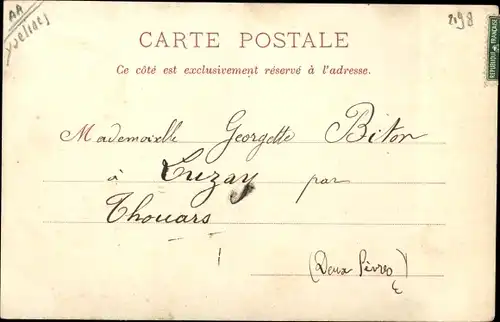 AA
Yvelines
2198
REPUBLIQUE FRANÇAISE
CARTE POSTALE
Ce côté est exclusivement réservé à l'adresse.
Mademoiselle Georgette Biton
à Luzay par
Thouars
(Deux Sèvres)